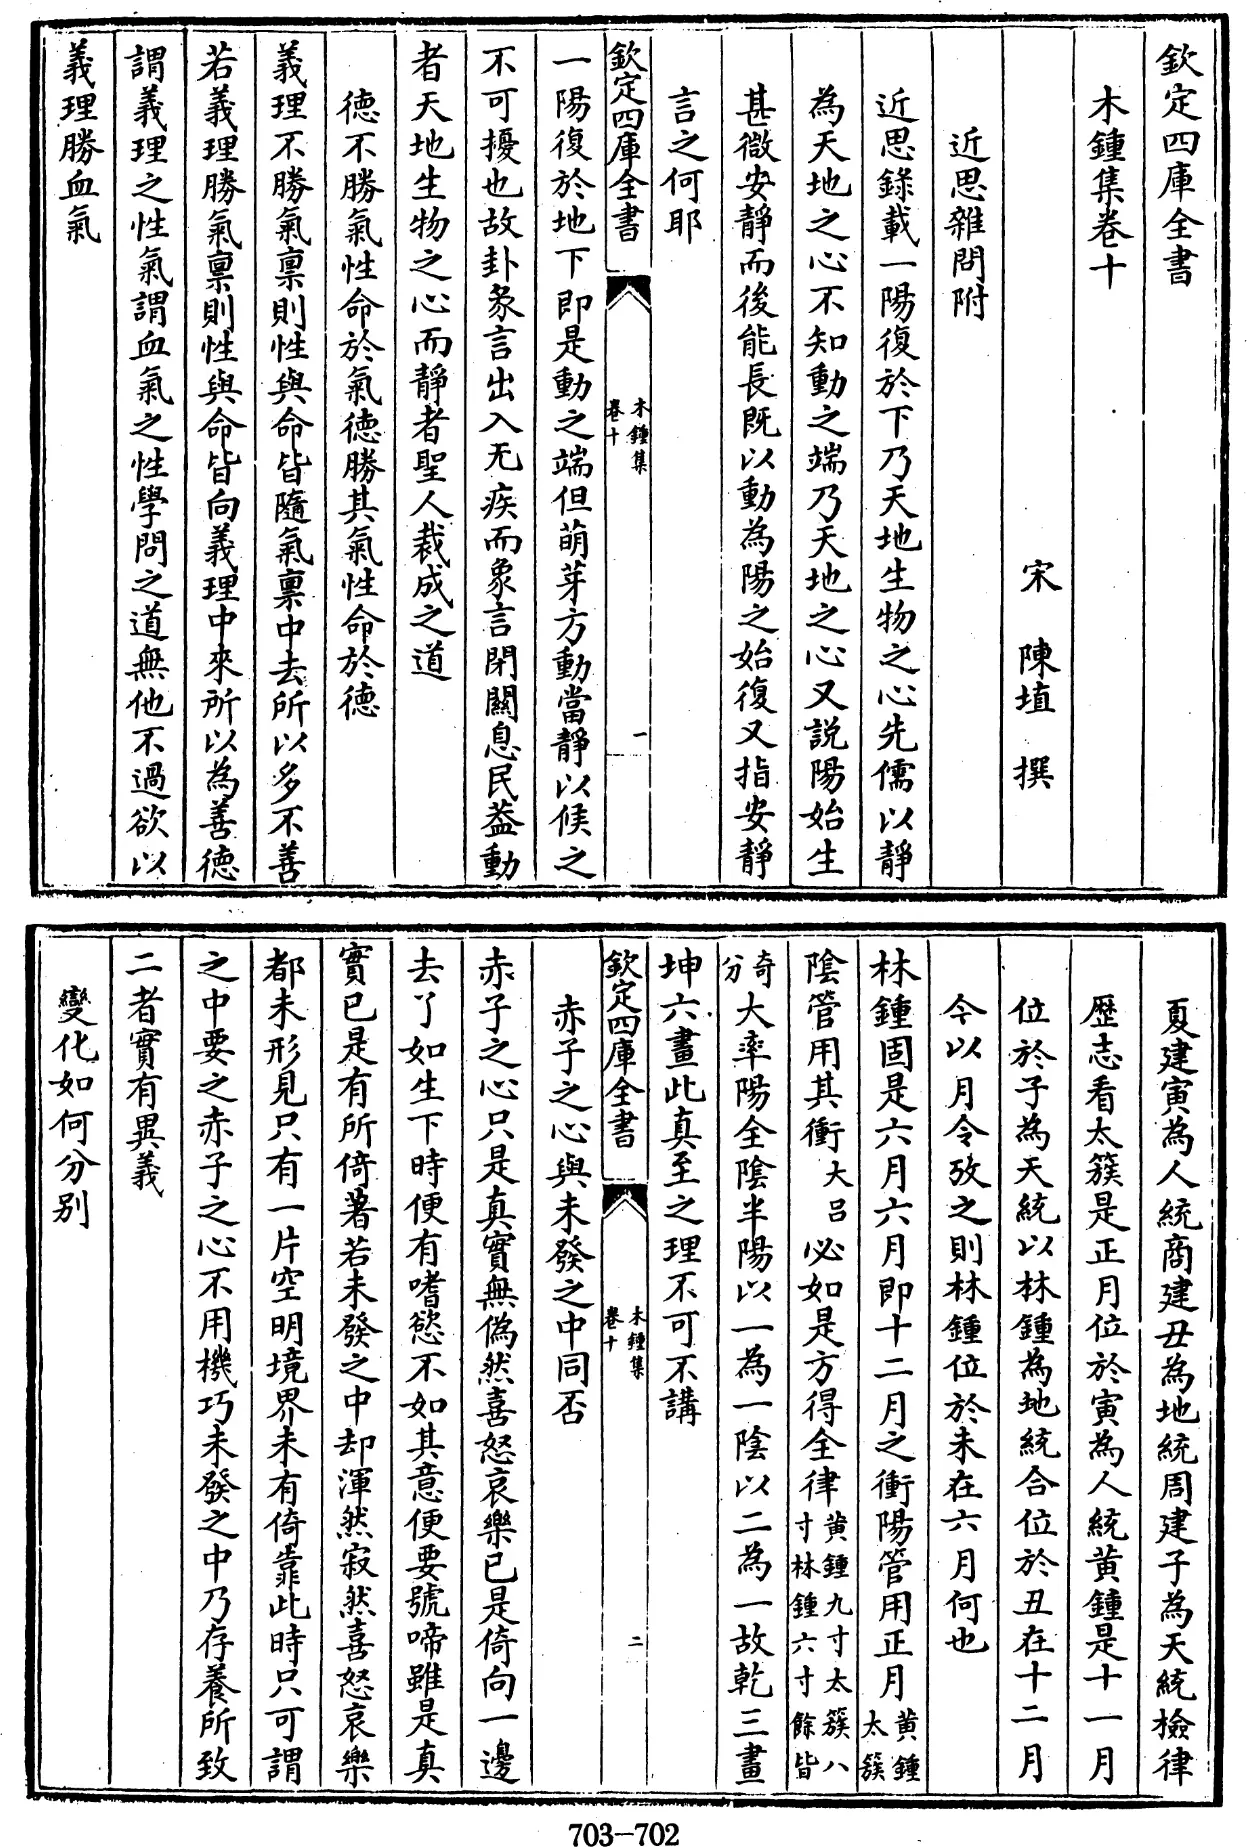 欽定四庫全書
木鍾集卷十
宋 陳埴 撰
近思雜問附
近思錄載一陽復於下乃天地生物之心先儒以靜
為天地之心不知動之端乃天地之心又説陽始生
甚微安靜而後能長既以動為陽之始復又指安靜
言之何耶
欽定四庫全書 木鍾集 卷十 一
一陽復於地下即是動之端但萌芽方動當靜以候之
不可擾也故卦彖言出入无疾而象言閉關息民葢動
者天地生物之心而靜者聖人裁成之道
德不勝氣性命於氣德勝其氣性命於德
義理不勝氣禀則性與命皆隨氣禀中去所以多不善
若義理勝氣禀則性與命皆向義理中來所以為善德
謂義理之性氣謂血氣之性學問之道無他不過欲以
義理勝血氣
夏建寅為人統商建丑為地統周建子為天統撿律
歴志看太簇是正月位於寅為人統黄鍾是十一月
位於子為天統以林鍾為地統合位於丑在十二月
今以月令攷之則林鍾位於未在六月何也
林鍾固是六月六月即十二月之衝陽管用正月黄鍾太簇
陰管用其衝大吕必如是方得全律黄鍾九寸太簇八寸林鍾六寸餘皆
奇分大率陽全陰半陽以一為一陰以二為一故乾三畫
坤六畫此真至之理不可不講
欽定四庫全書 木鍾集 卷十 二
赤子之心與未發之中同否
赤子之心只是真實無偽然喜怒哀樂已是倚向一邊
去了如生下時便有嗜慾不如其意便要號啼雖是真
實已是有所倚著若未發之中却渾然寂然喜怒哀樂
都未形見只有一片空明境界未有倚靠此時只可謂
之中要之赤子之心不用機巧未發之中乃存養所致
二者實有異義
變化如何分别
703-702